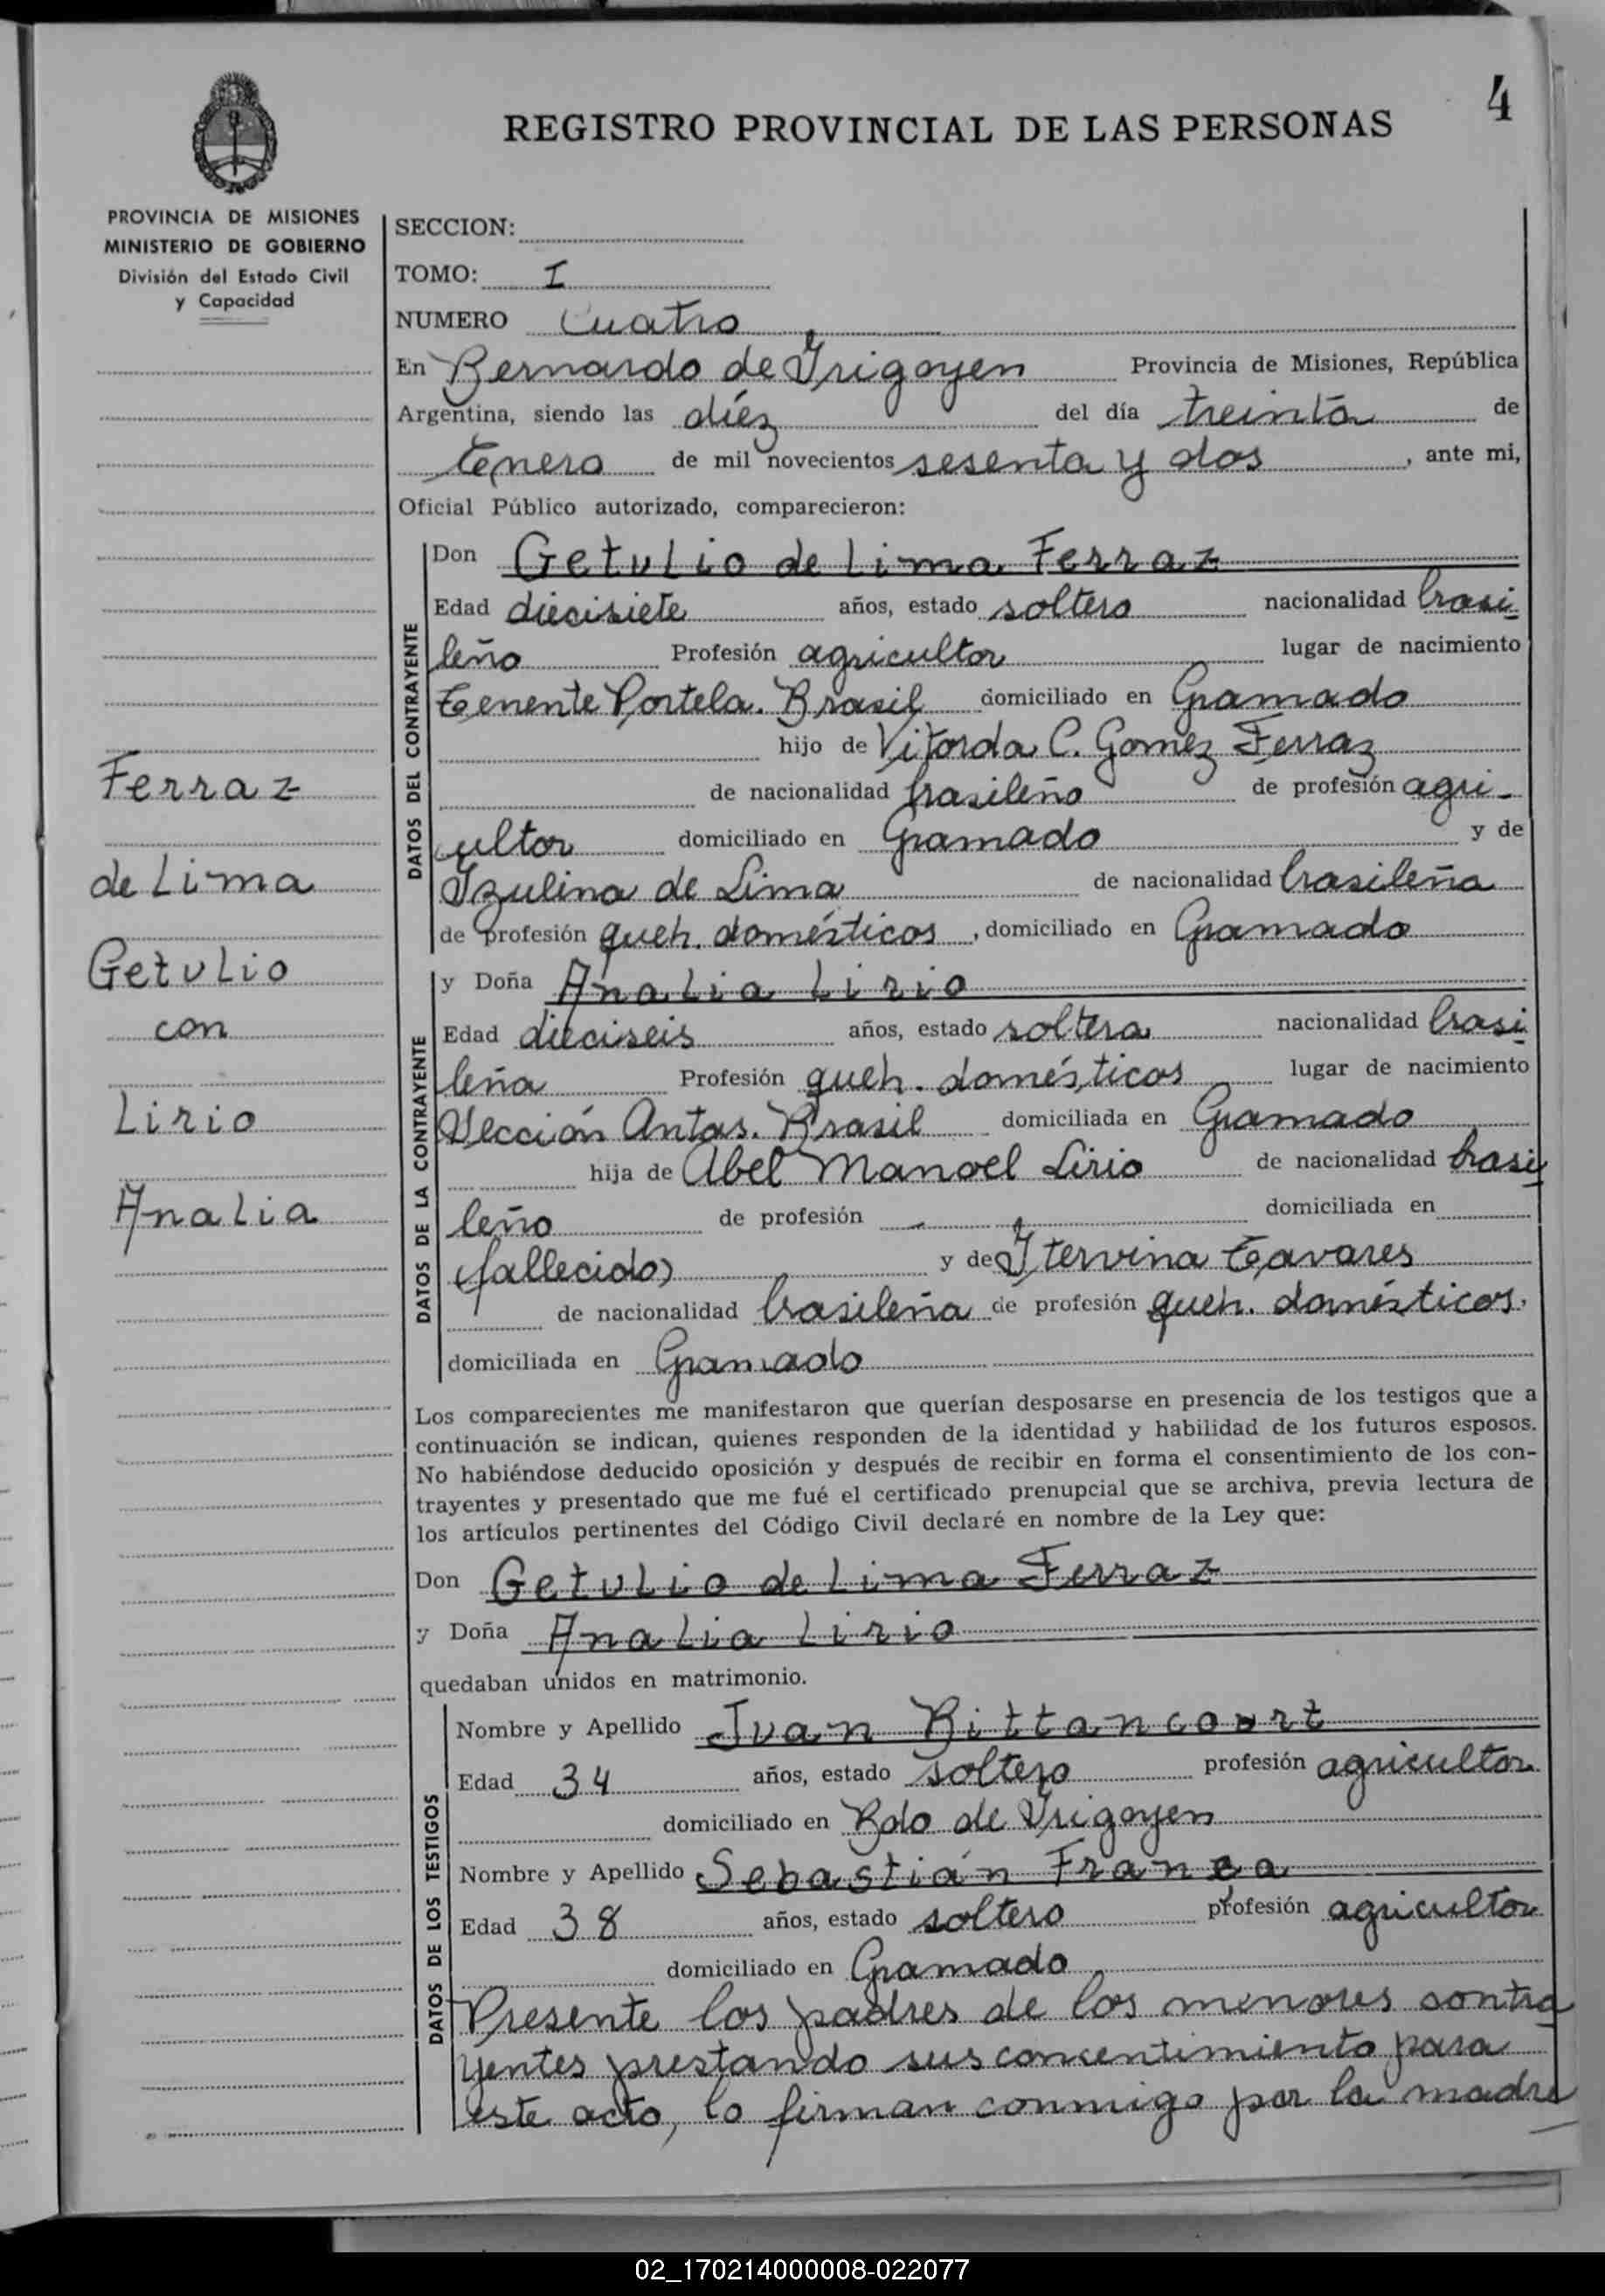 4
REGISTRO PROVINCIAL DE LAS PERSONAS
PROVINCIA DE MISIONES
MINISTERIO DE GOBIERNO
División del Estado Civil
y Capacidad
SECCION:
TOMO: I
NUMERO Cuatro
En Bernardo de Yrigoyen Provincia de Misiones, República
Argentina, siendo las diéz del día treinta de
Enero de mil novecientos sesenta y dos, ante mi,
Oficial Público autorizado, comparecieron:
DATOS DEL CONTRAYENTE
Don Getulio de Lima Ferraz
Edad diecisiete años, estado soltero nacionalidad brasi
leño Profesión agricultor lugar de nacimiento
Tenente Portela. Brasil domiciliado en Gramado
hijo de Vitorda C. Gomez Ferraz
de nacionalidad brasileño de profesión agri-
cultor domiciliado en Gramado y de
Izulina de Lima de nacionalidad brasileña
de profesión queh. domésticos, domiciliado en Gramado
Ferraz
de Lima
Getulio
con
Lirio
Analia
DATOS DE LA CONTRAYENTE
y Doña Analia Lirio
Edad dieciseis años, estado soltera nacionalidad brasi
leña Profesión queh. domésticos lugar de nacimiento
Sección Antas. Brasil domiciliada en Gramado
hija de Abel Manoel Lirio de nacionalidad brasi
leño de profesión - domiciliada en
(fallecido) y de Itervina Tavares
de nacionalidad brasileña de profesión queh. domésticos,
domiciliada en Gramado
Los comparecientes me manifestaron que querían desposarse en presencia de los testigos que a
continuación se indican, quienes responden de la identidad y habilidad de los futuros esposos.
No habiéndose deducido oposición y después de recibir en forma el consentimiento de los con-
trayentes y presentado que me fué el certificado prenupcial que se archiva, previa lectura de
los artículos pertinentes del Código Civil declaré en nombre de la Ley que:
Don Getulio de Lima Ferraz
y Doña Analia Lirio
quedaban unidos en matrimonio.
DATOS DE LOS TESTIGOS
Nombre y Apellido Juan Bittancourt
Edad 34 años, estado soltero profesión agricultor
domiciliado en Bdo de Yrigoyen
Nombre y Apellido Sebastián Franca
Edad 38 años, estado soltero profesión agricultor
domiciliado en Gramado
Presente los padres de los menores contra
yentes prestando sus concentimiento para
este acto, lo firman conmigo por la madre
02_170214000008-022077